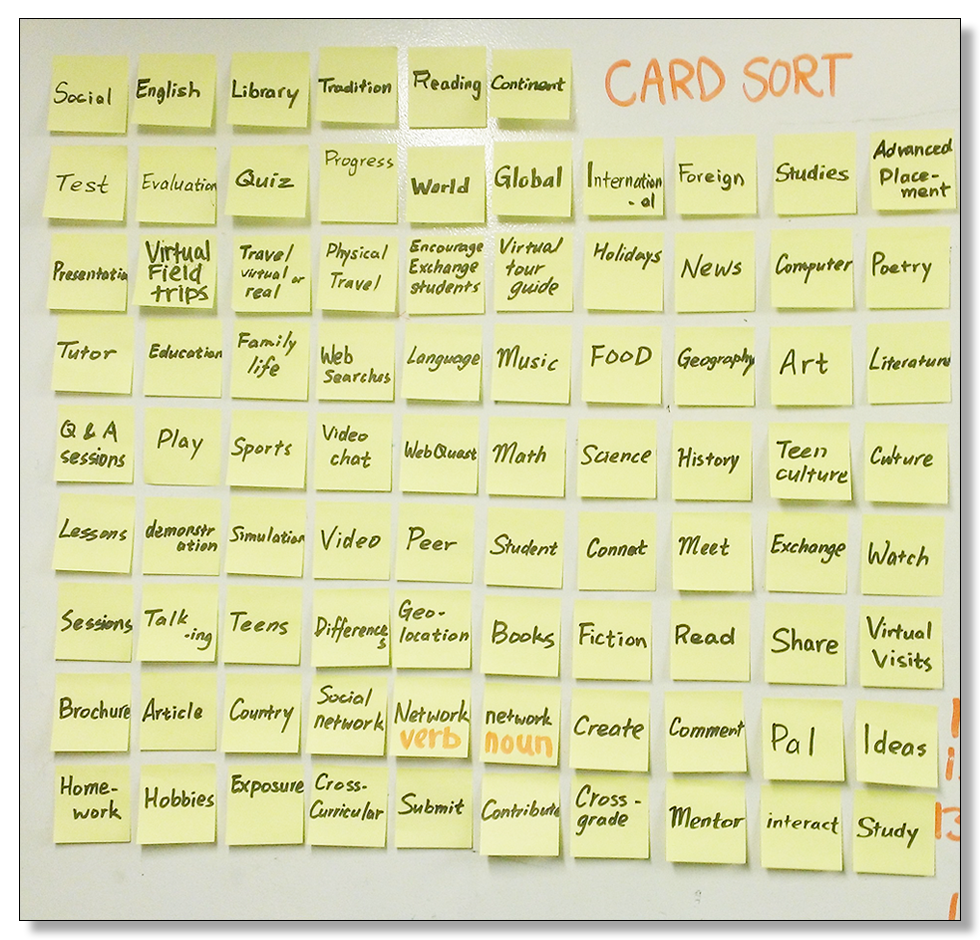 CARD SORT
Social
English
Library
Tradition
Reading
Continent
Test
Evaluation
Quiz
Progress
World
Global
Internation
-al
Foreign
Studies
Advanced
Place-
ment
Presentatio
Virtual
Field
trips
Travel
virtual or
real
Physical
Travel
Encourage
Exchange
students
Virtual
tour
guide
Holidays
News
Computer
Poetry
Tutor
Education
Family
life
Web
Searches
Language
Music
FOOD
Geography
Art
Literature
Q & A
sessions
Play
Sports
Video
chat
WebQuest
Math
Science
History
Teen
culture
Culture
Lessons
demonstr
ation
Simulation
Video
Peer
Student
Connect
Meet
Exchange
Watch
Sessions
Talk
-ing
Teens
Difference
s
Geo-
location
Books
Fiction
Read
Share
Virtual
Visits
Brochure
Article
Country
Social
network
Network
verb
network
noun
Create
Comment
Pal
Ideas
Home-
work
Hobbies
Exposure
Cross-
Curricular
Submit
Contribute
Cross-
grade
Mentor
interact
Study